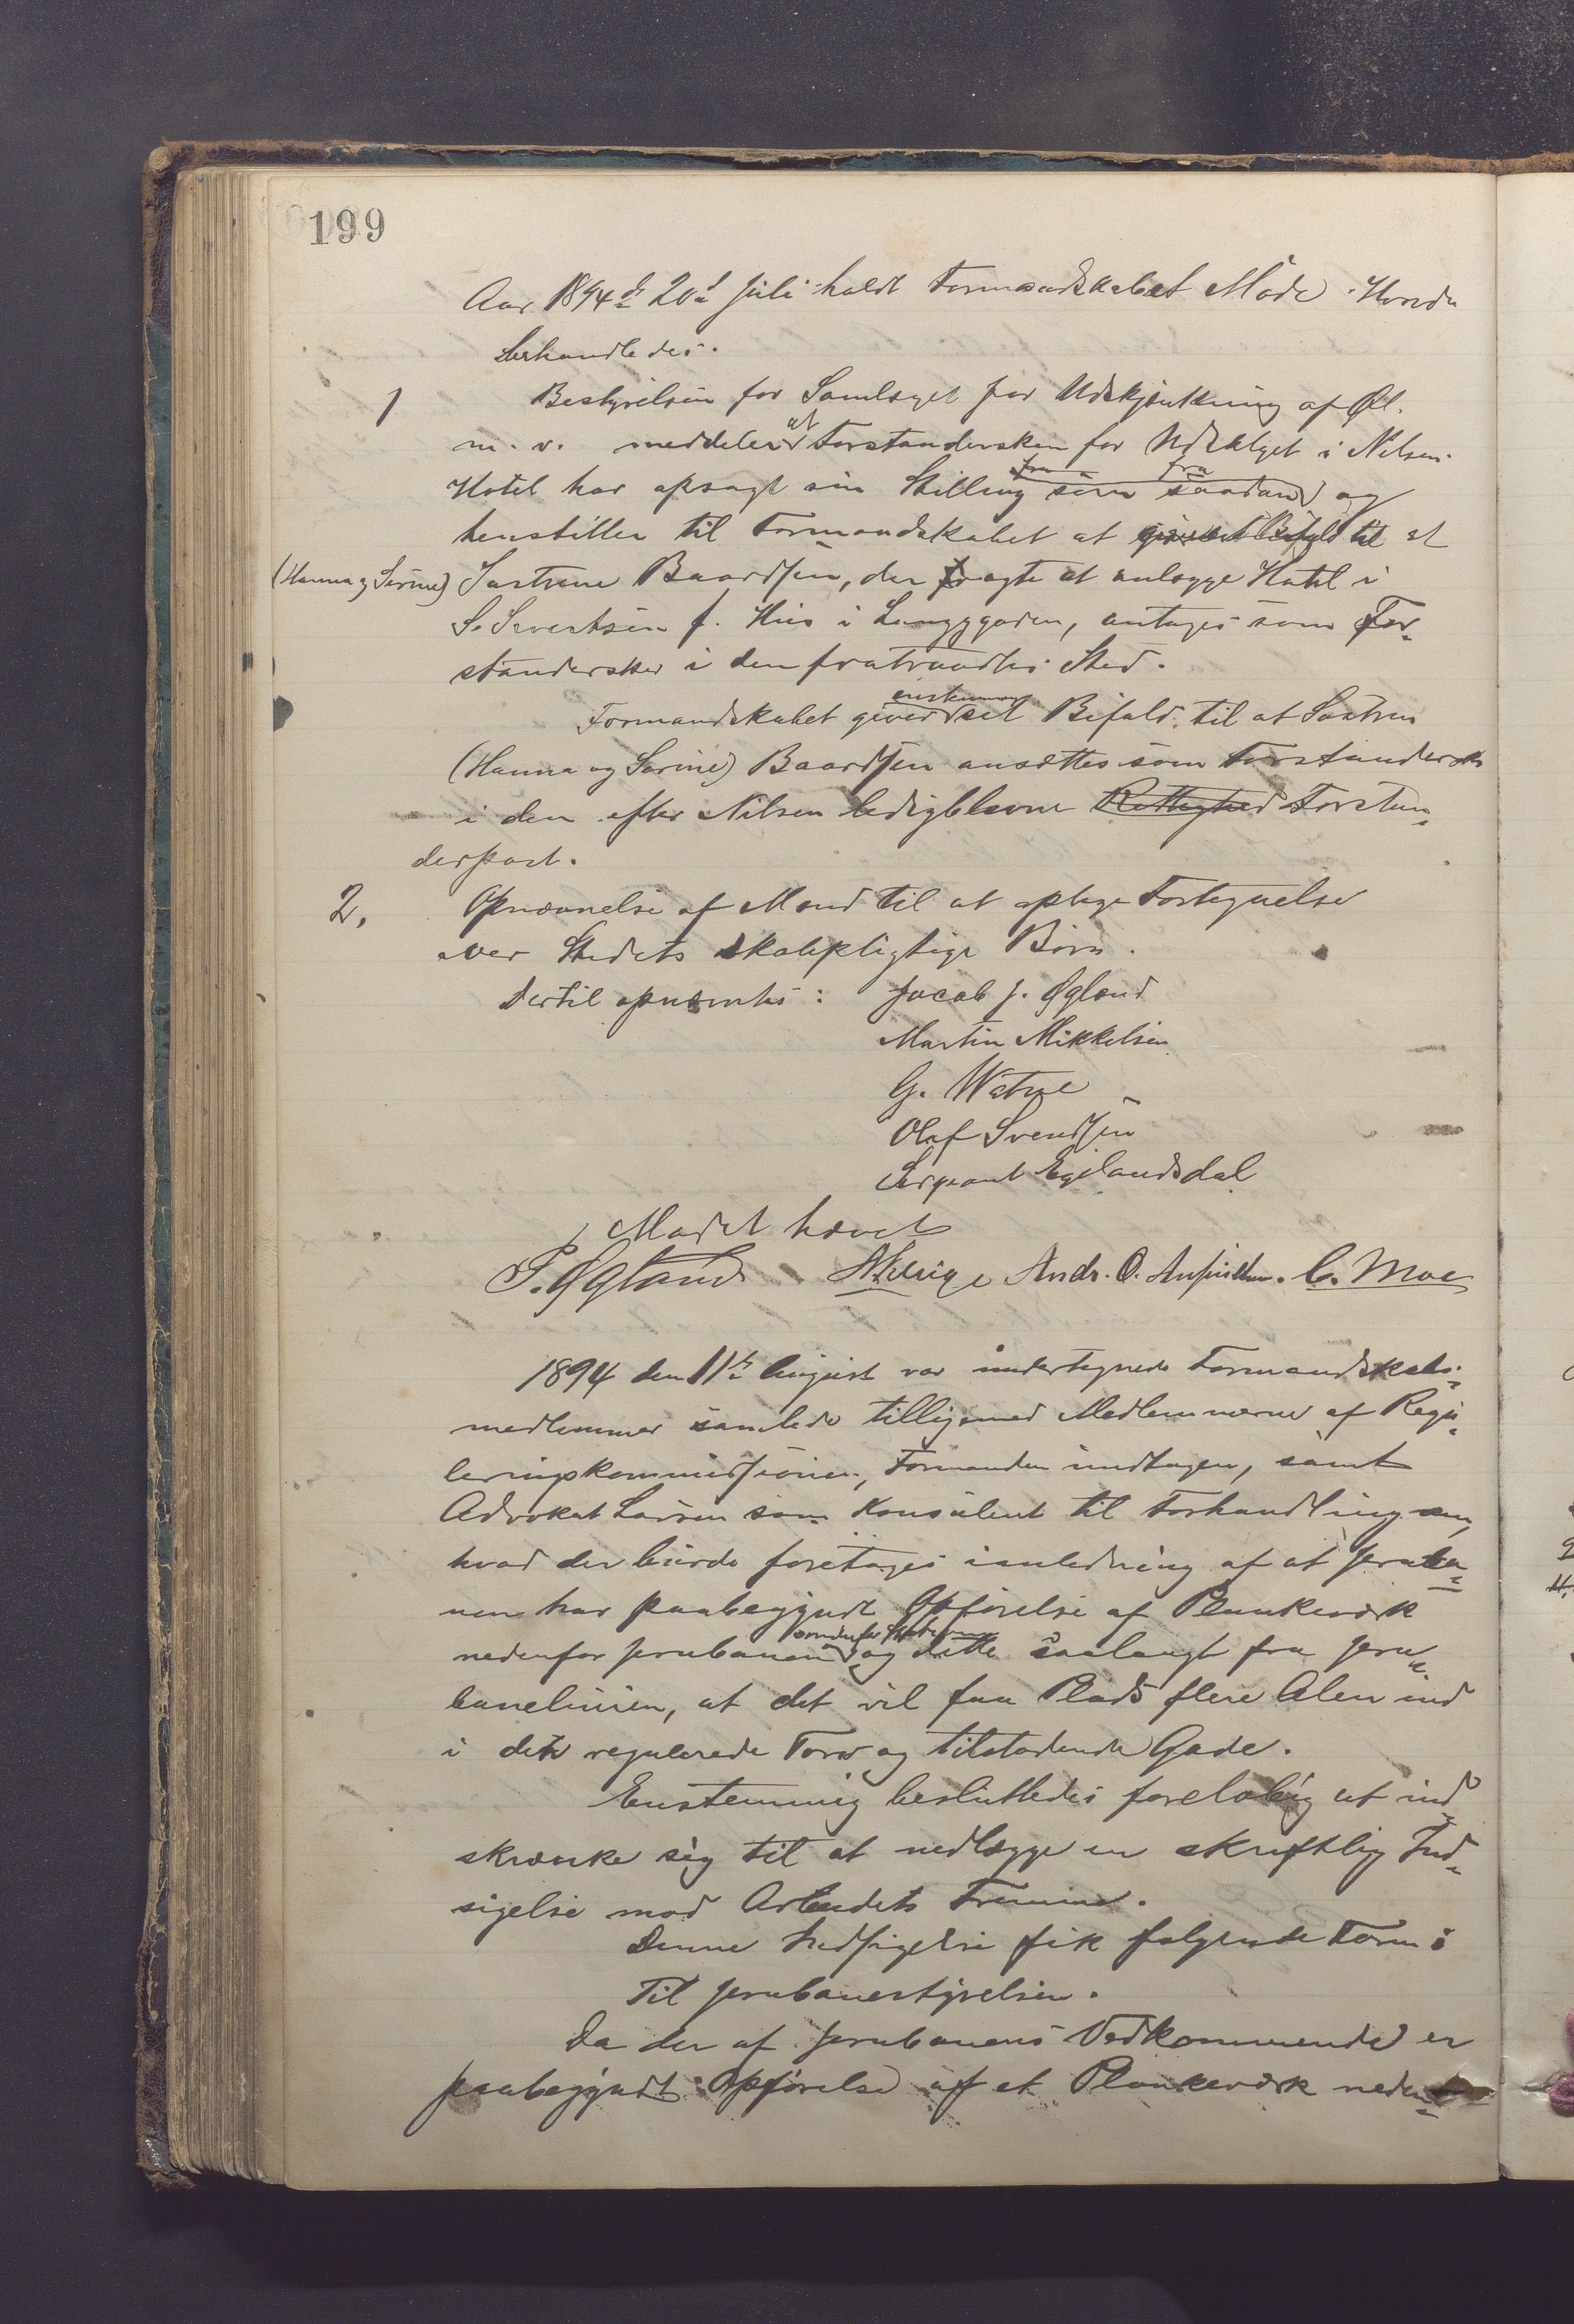 199
Aar 1894 d. 20d Juli holdt Formandskabet Møde. Hvorda
behandledes.
1 Bestyrelsen for Samlaget for Udskjænkning af Øl.
m. v. meddeler at Forstandersken for Udsalget i Nilsens
Hotel har opsagt sin Stilling som saadan og
henstiller til Formandskabet at give sit Bifald til at
(Hanna og Serine) Søstrene Baardsen, der agte at anlægge Hotel i
S. Sivertsen f. Hus i Langgaden, antages som For-
standersker i den fratraadtes Sted.
Formandskabet giver enstemmig sit Bifald til at Søstrene
(Hanna og Serine) Baardsen ansættes som Forstandersker
i den efter Nilsen ledigblevne Rettighed Forstan-
derpost.
2. Opnævnelse af Mænd til at optage Fortegnelse
over Stedets skolepligtige Børn.
Dertil opnævntes: Jacob J. Øgland
Martin Mikkelsen
G. Watne
Olaf Svendsen
Sergeant Egelandsdal
Mødet hævet
P. Øgland Andr. O. C. Moe
1894 den 11te August var undertegnede Formandskabs-
medlemmer samlede tilligemed Medlemmerne af Regu-
leringskommissionen, Formanden iundtagen, samt
Advokat Larsen som Konsulent til Forhandling om,
hvad der burde foretages i anledning af at Jernba-
nen har paabegyndt Opførelse af Plankeværk
nedenfor Jernbanen og dette saalangt fra Jern-
banelinien, at det vil faa Plads flere Alen ind
i det regulerede Torv og tilstødende Gade.
Enstemmig besluttedes foreløbig at ind-
skrænke sig til at nedlægge en skriftlig Ind-
sigelse mod Arbeidets Fremme.
Denne Indsigelse fik følgende Form:
Til Jernbanestyrelsen.
Da der af Jernbanens Vedkommende er
paabegyndt Opførelse af et Plankeværk neden-